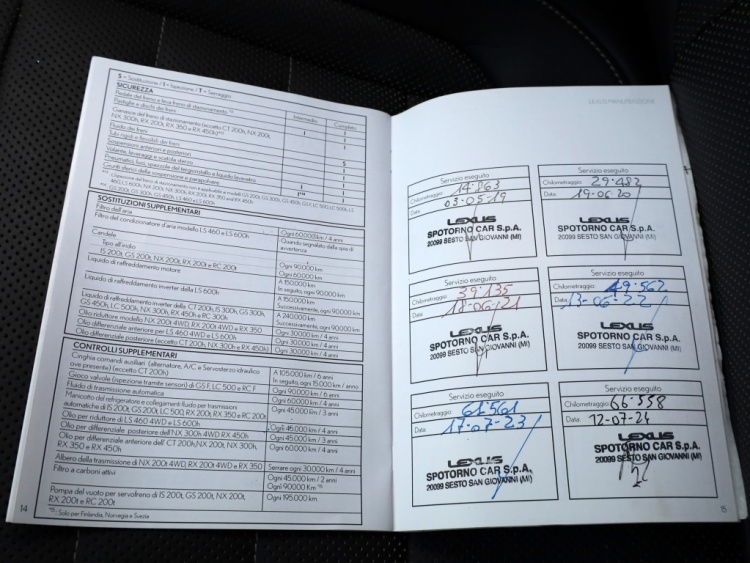 S = Sostituzione / I = Ispezione / T = Serraggio
SICUREZZA
Intermedio
Completo
Pedale del freno e leva freno di stazionamento
Pastiglie e dischi dei freni
Ganasce del freno di stazionamento (eccetto CT 200h, NX 200t,
NX 300h, RX 200t, RX 350 e RX 450h)
I
I
Fluido dei freni
Tubi rigidi e flessibili dei freni
Sospensioni anteriori e posteriori
S
Volante, leveraggi e scatola sterzo
SOSTITUZIONI SUPPLEMENTARI
Filtro dell'aria
Ogni 60.000 km / 4 anni
Filtro del condizionatore d'aria modello LS 460 e LS 600h
Quando segnalato dalla spia di
avvertenza
Candele
Tipo all'iridio
Ogni 90.000 km
IS 200t, GS 200t, NX 200t, RX 200t e RC 200t
Ogni 60.000 km
Liquido di raffreddamento motore
A 150.000 km
In seguito, ogni 90.000 km
Liquido di raffreddamento inverter della LS 600h
A 150.000 km
Successivamente, ogni 90.000 km
Liquido di raffreddamento inverter della CT 200h, IS 300h, GS 300h,
GS 450h, LC 500h, NX 300h, RX 450h e RC 300h
A 240.000 km
Successivamente, ogni 90.000 km
Olio riduttore modello NX 200t 4WD, RX 200t 4WD e RX 350
Ogni 30.000 km / 4 anni
Olio differenziale anteriore per LS 460 4WD e LS 600h
Ogni 30.000 km / 4 anni
Olio differenziale posteriore (eccetto CT 200h, NX 300h e RX 450h)
Ogni 30.000 km / 4 anni
CONTROLLI SUPPLEMENTARI
Cinghia comando ausiliari (alternatore, A/C e Servosterzo idraulico
ove presente) (eccetto CT 200h)
A 105.000 km / 6 anni
In seguito, ogni 15.000 km / anno
Gioco valvole (ispezione tramite sensori) di GS F, LC 500 e RC F
Ogni 90.000 km / 6 anni
Fluido di trasmissione automatica
Ogni 60.000 km / 4 anni
Manicotto del refrigeratore e collegamenti fluido per trasmissioni
automatiche di IS 200t, GS 200t, LC 500, RX 200t, RX 350 e RC 200t
Ogni 45.000 km / 3 anni
Olio per riduttore di LS 460 4WD e LS 600h
Ogni 45.000 km / 4 anni
Olio per differenziale posteriore dell'NX 300h 4WD RX 450h
Ogni 45.000 km / 3 anni
Olio per differenziale anteriore dell' CT 200h, NX 200t, NX 300h,
RX 350 e RX 450h
Ogni 60.000 km / 4 anni
Albero della trasmissione di NX 200t 4WD, RX 200t 4WD e RX 350
Serrare ogni 30.000 km / 4 anni
Filtro a carboni attivi
Ogni 45.000 km / 2 anni
Ogni 90.000 Km
Pompa del vuoto per servofreno di IS 200t, GS 200t, NX 200t,
RX 200t e RC 200t
Ogni 195.000 km
Solo per Finlandia, Norvegia e Svezia
14
LEXUS MANUTENZIONE
Servizio eseguito
Chilometraggio: 14.863
Data: 03-05-19
LEXUS
SPOTORNO CAR S.p.A.
20099 SESTO SAN GIOVANNI (MI)
Servizio eseguito
Chilometraggio: 29.482
Data: 19-06-20
LEXUS
SPOTORNO CAR S.p.A.
20099 SESTO SAN GIOVANNI (MI)
Servizio eseguito
Chilometraggio: 39.135
Data: 18-06-21
LEXUS
SPOTORNO CAR S.p.A.
20099 SESTO SAN GIOVANNI (MI)
Servizio eseguito
Chilometraggio: 49.562
Data: 13-06-22
LEXUS
SPOTORNO CAR S.p.A.
20099 SESTO SAN GIOVANNI (MI)
Servizio eseguito
Chilometraggio: 61.561
Data: 17-07-23
LEXUS
SPOTORNO CAR S.p.A.
20099 SESTO SAN GIOVANNI (MI)
Servizio eseguito
Chilometraggio: 66.558
Data: 12-07-24
LEXUS
SPOTORNO CAR S.p.A.
20099 SESTO SAN GIOVANNI (MI)
15